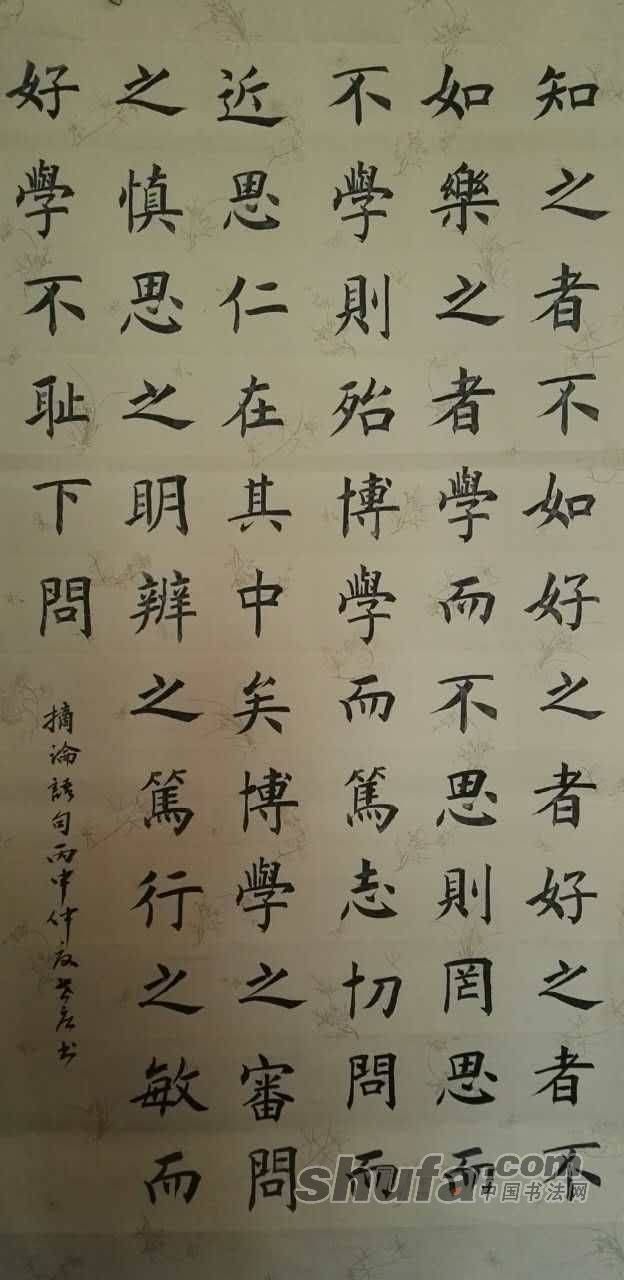 知之者不如好之者好之者不
如樂之者學而不思則罔思而
不學則殆博學而篤志切問而
近思仁在其中矣博學之審問
之慎思之明辨之篤行之敏而
好學不恥下問
摘論語句丙申仲夏書
shufa.com
中国书法网